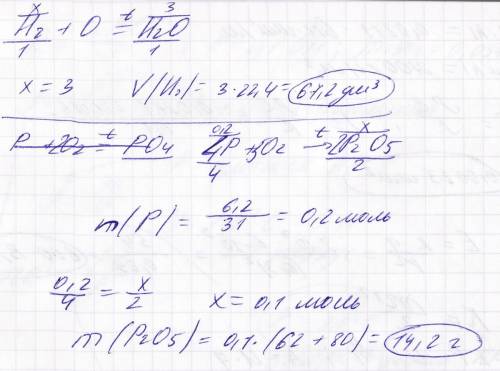 x 3
H₂ + O =t H₂O
1 1
x = 3 V(H₂) = 3·22,4 = 67,2 дм³
P + 2O₂ =t PO₄ 0,2 4P + 5O₂ t→ x 2P₂O₅
4 2
m(P) = 6,2/31 = 0,2 моль
0,2/4 = x/2 x = 0,1 моль
m(P₂O₅) = 0,1·(62 + 80) = 14,2 г